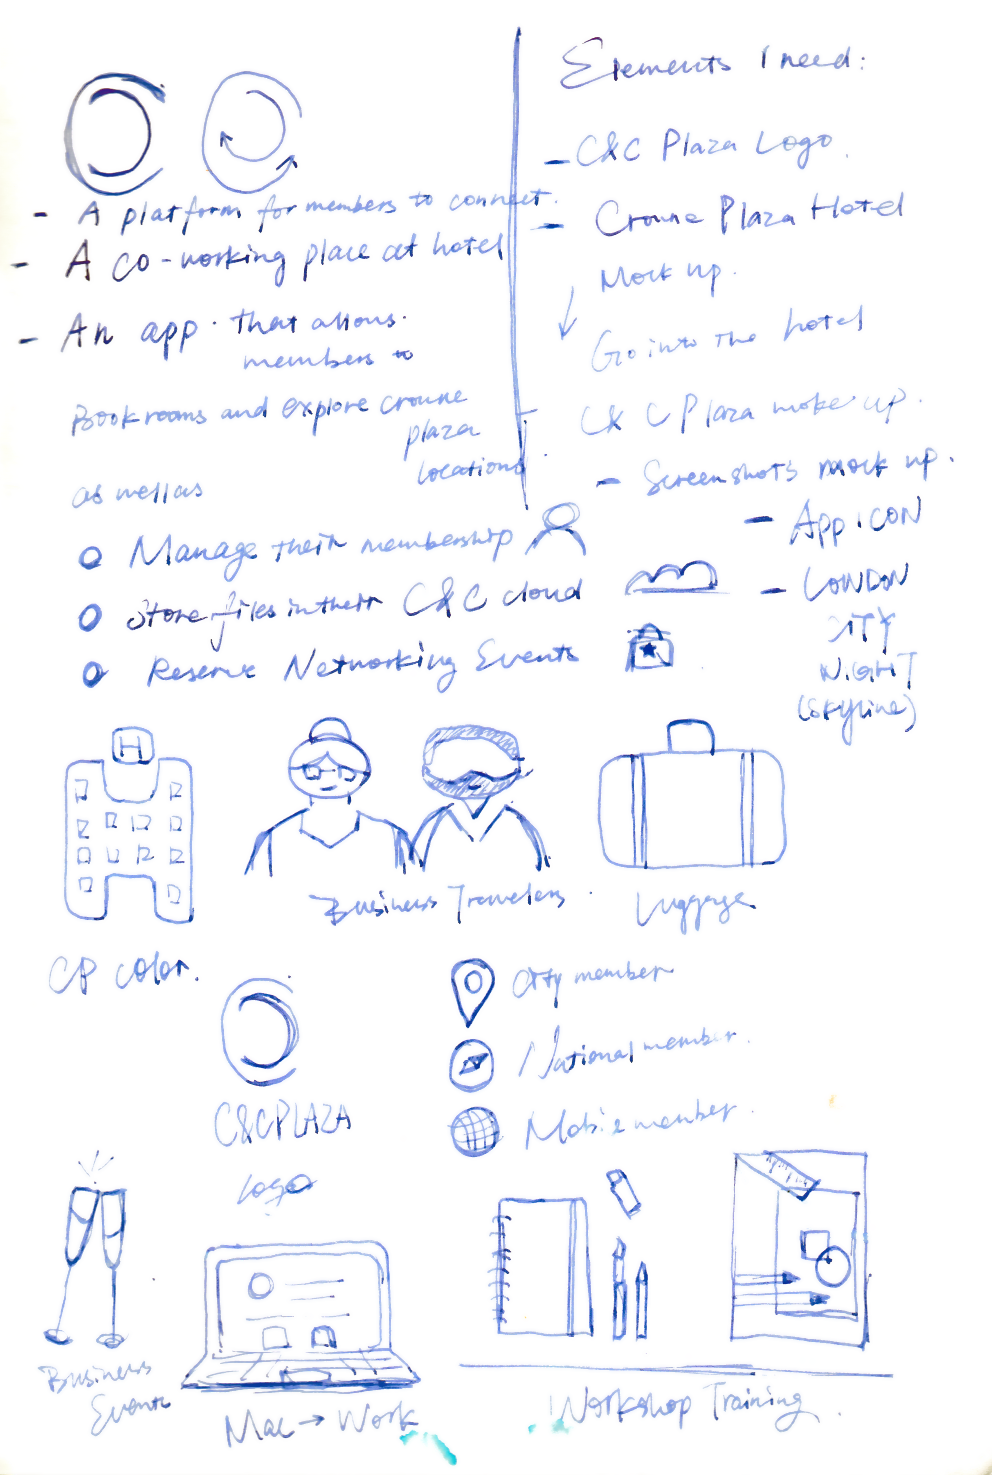 - A platform for members to connect.
- A co-working place at hotel
- An app. that allows.
members to
Book rooms and explore crowne
plaza
locations
as well as
Manage their membership
Store files in their C&C cloud
Reserve Networking Events
Elements I need:
- C&C Plaza Logo.
- Crowne Plaza Hotel
Mock up.
Go into the hotel
C&C Plaza moke up.
- Screenshots mock up.
- App ICON
- LONDON
CITY
NIGHT
(skyline)
H
CP color.
Business Travelers.
Luggage
C&C PLAZA
Logo
City member
National member.
Mobile member.
Business
Events
Mac → Work
Workshop Training.